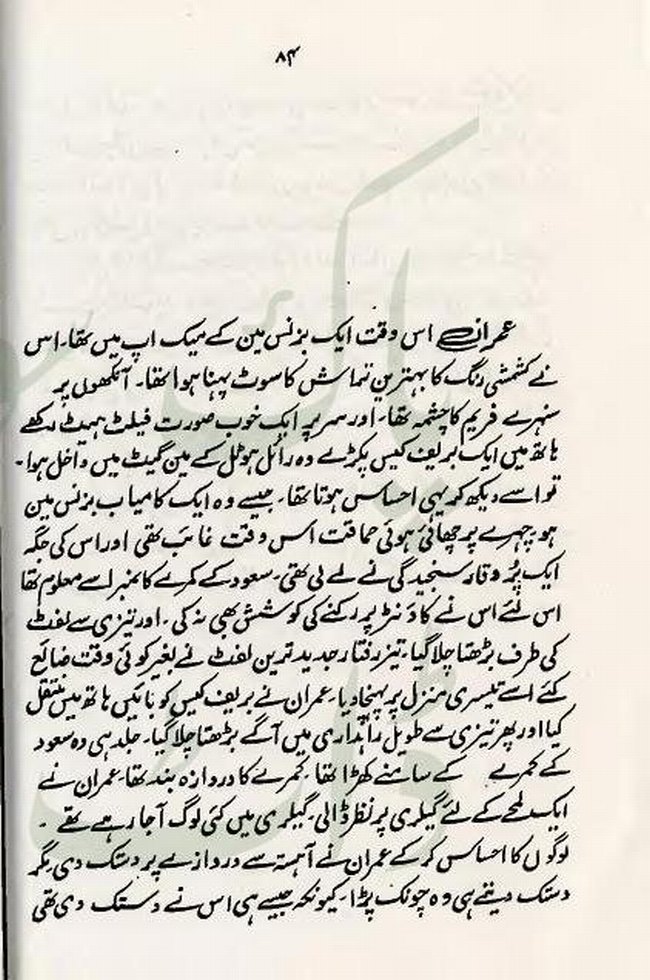 ۸۴
عمران اس وقت ایک بزنس مین کے میک اپ میں تھا۔ اس
نے کشمشی رنگ کا بہترین تراش کا سوٹ پہنا ہوا تھا۔ آنکھوں پر
سنہرے فریم کا چشمہ تھا۔ اور سر پر ایک خوب صورت فیلٹ ہیٹ رکھے
ہاتھ میں ایک بریف کیس پکڑے وہ رائل ہوٹل کے مین گیٹ میں داخل ہوا۔
تو اسے دیکھ کر یہی احساس ہوتا تھا۔ جیسے وہ ایک کامیاب بزنس مین
ہو چہرے پر چھائی ہوئی حماقت اس وقت غائب تھی اور اس کی جگہ
ایک پُر وقار سنجیدگی نے لے لی تھی۔ سعود کے کمرے کا نمبر اسے معلوم تھا
اس لئے اس نے کاؤنٹر پر رکنے کی کوشش بھی نہ کی۔ اور تیزی سے لفٹ
کی طرف بڑھتا چلا گیا۔ تیز رفتار جدید ترین لفٹ نے بغیر کوئی وقت ضائع
کئے اسے تیسری منزل پر پہنچا دیا۔ عمران نے بریف کیس کو بائیں ہاتھ میں منتقل
کیا اور پھر تیزی سے طویل راہداری میں آگے بڑھتا چلا گیا۔ جلد ہی وہ سعود
کے کمرے کے سامنے کھڑا تھا۔ کمرے کا دروازہ بند تھا۔ عمران نے
ایک لمحے کے لئے گیلری پر نظر ڈالی۔ گیلری میں کئی لوگ آ جا رہے تھے۔
لوگوں کا احساس کر کے عمران نے آہستہ سے دروازے پر دستک دی۔ مگر
دستک دیتے ہی وہ چونک پڑا۔ کیونکہ جیسے ہی اس نے دستک دی تھی
پاک